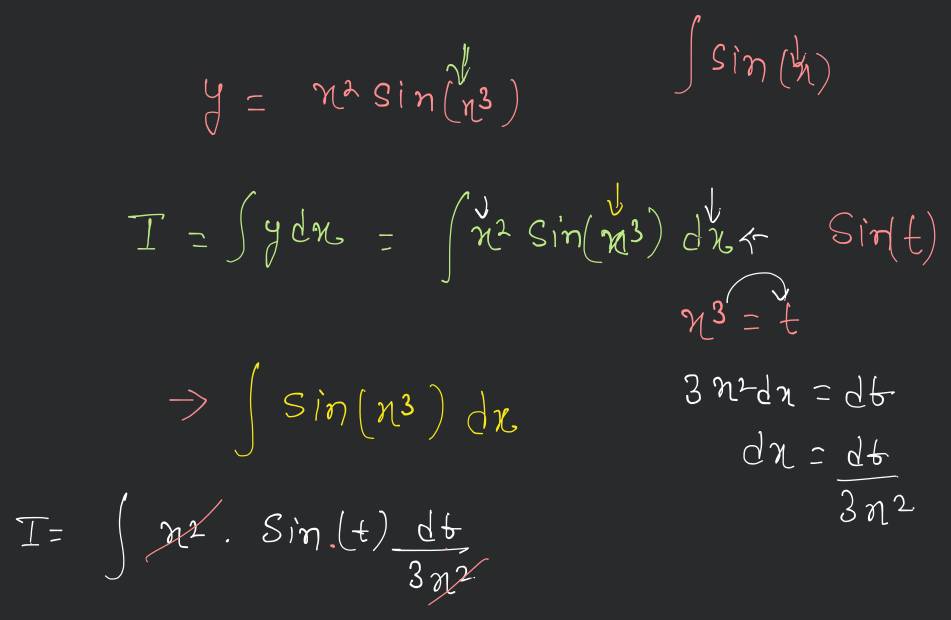 y = x² sin(x³)
∫ sin(x)
I = ∫ y dx = ∫ x² sin(x³) dx ←
sin(t)
x³ = t
→ ∫ sin(x³) dx
3x²dx = dt
dx = dt/3x²
I = ∫ x² . sin.(t) dt/3x²